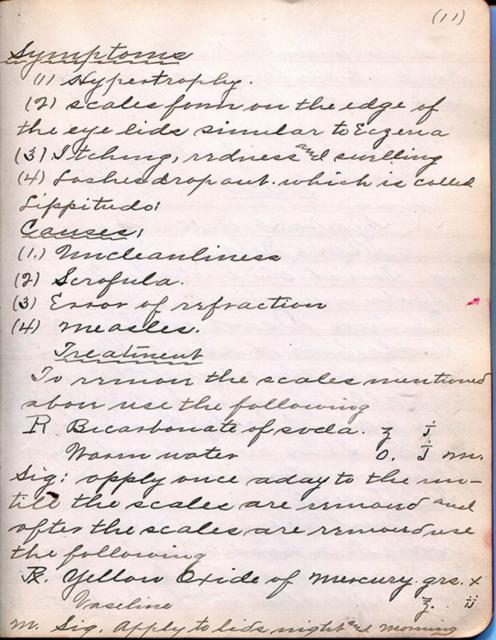 (11)
Symptoms
(1) Hypertrophy.
(2) scales form on the edge of
the eye lids similar to Eczema
(3) Itching, redness and swelling
(4) Lashes drop out. which is called
Lippitudo.
Causes,
(1.) Uncleanliness
(2) Scrofula.
(3) Error of refraction
(4) Measles.
Treatment
To remove the scales mentioned
above use the following
℞ Bicarbonate of soda. ʒ j
Warm water O. j m.
Sig: apply once a day to the
till the scales are removed and
after the scales are removed use
the following
℞. Yellow Oxide of Mercury grs. x
Vaseline ʒ. ij
M. Sig. Apply to lids night and morning